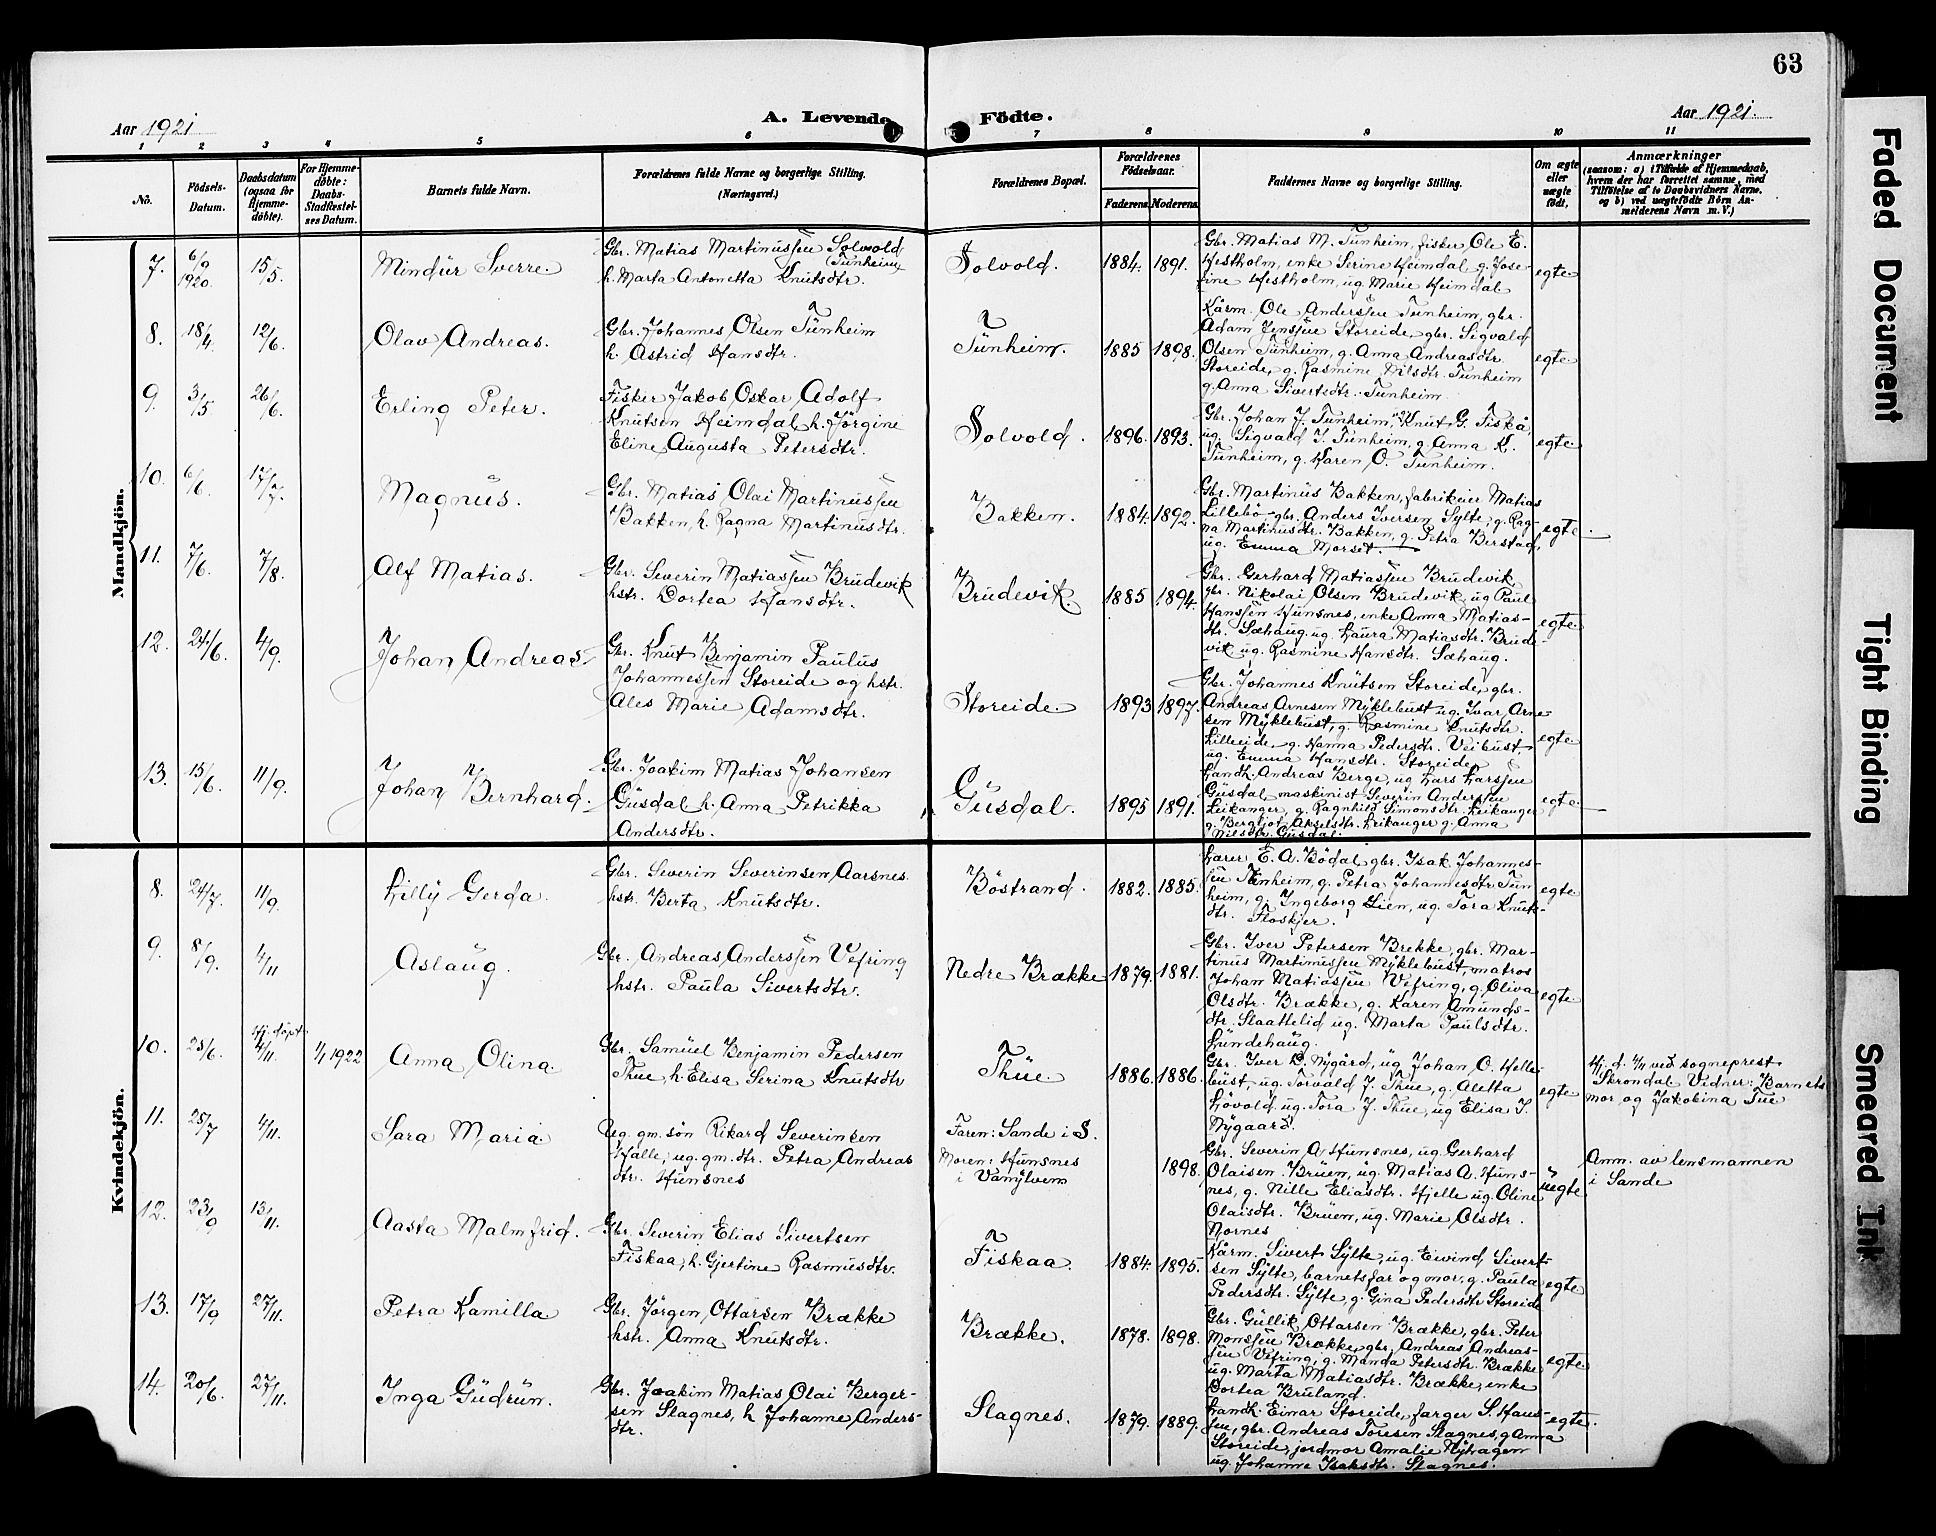 63
Aar 1921
A. Levende Födte.
Aar 1921.
1 2 3 4 5 6 7 8 9 10 11
No.
Födsels-
Datum.
Daabsdatum
(ogsaa for
Hjemme-
döbte).
For Hjemme-
döbte:
Daabs-
Stadfæstel-
ses Datum.
Barnets fulde Navn.
Forældrenes fulde Navne og borgerlige Stilling.
(Næringsvei.)
Forældrenes Bopæl.
Forældrenes
Födselsaar.
Faderens.
Moderens.
Faddernes Navne og borgerlige Stilling.
Om ægte
eller
uægte
födt.
Anmærkninger
(saasom: a) i Tilfælde af Hjemmedaab,
hvem der har forrettet samme, med
Tilföielse af to Daabsvidners Navne,
og b) ved uægtefödte Börn An-
melderens Navn m. V.)
Mandkjön.
7. 6/9 1920. 15/5. Mindür Sverre.
Gbr. Matias Martinussen Solvold
(Tunheim)
h. Marta Antonetta Knutsdtr.
Solvold. 1884. 1891.
Gbr. Matias M. Tunheim, fisker Ole E.
Hestholm, enke Serine Heimdal g. Jose-
fine Hestholm, ug. Marie Heimdal
egte
8. 18/4. 12/6. Olav Andreas.
Gbr. Johannes Olsen Tünheim
h. Astrid Hansdtr.
Tünheim. 1885 1898.
Kårm. Ole Anderssen Tunheim, gbr.
Adam Jenssen Storeide, gbr. Sigvald
Olsen Tunheim, g. Anna Andreasdtr.
Storeide, g. Rasmine Nilsdtr. Tunheim
g. Anna Sivertsdtr. Tunheim.
egte
9. 3/5. 26/6. Erling Peter.
Fisker Jakob Oskar Adolf
Knutsen Heimdal h. Jörgine
Eline Augusta Petersdtr.
Solvold. 1896. 1893.
Gbr. Johan J. Tunheim, " Knut G. Fiskå,
ug. Sigvald J. Tunheim, g. Anna K.
Tunheim, g. Karen O. Tunheim.
egte.
10. 6/6. 17/7. Magnüs.
Gbr. Matias Olai Martinussen
Bakken, h. Ragna Martinusdtr.
Bakken. 1884. 1892.
Gbr. Martinüs Bakken, fabrikeier Matias
Lillebö gbr. Anders Iversen Sylte, g. Rag-
na Martinusdtr. Bakken, g. Petra Berstad,
ug. Emma Morset.
egte.
11. 7/6. 7/8. Alf Matias.
Gbr. Severin Matiassen Brüdevik
hstr. Dortea Hansdtr.
Brüdevik. 1885 1894.
Gbr. Gerhard Matiassen Brüdevik
gbr. Nikolai Olsen Brüdevik, ug Paul
Hanssen Hunsnes, enke Anna Matias-
dtr. Sæhaug. ug. Laura Matiasdtr. Brüde-
vik ug. Rasmine Hansdtr. Sæhaug.
egte.
12. 24/6. 4/9. Johan Andreas.
Gbr. Knut Benjamin Paulus
Johannessen Storeide og hstr.
Ales Marie Adamsdtr.
Storeide. 1893 1897.
Gbr. Johannes Knütsen Storeide, gbr.
Andreas Arnesen Myklebust ug. Ivar Arne-
sen Myklebust, g. Rasmine Knutsdtr.
Lilleeide, g. Hanna Pedersdtr. Veibust.
ug. Emma Hansdtr. Storeide.
egte.
13. 15/6. 11/9. Johan Bernhard.
Gbr. Joakim Matias Johansen
Güsdal h. Anna Petrikka
Andersdtr.
Güsdal. 1895 1891.
Landh. Andreas Berge, ug Lars Larssen
Gusdal, maskinist Severin Anderssen
Leikanger, g. Ragnhild Simonsdtr. Leikanger
g. Bergljot Akselsdtr. Leikanger g. Anna
Nilsdtr. Gusdal.
egte.
Kvindekjön.
8. 24/7. 11/9. Lilly Gerda.
Gbr. Severin Severinsen Aarsnes
hstr. Berta Knutsdtr.
Böstrand. 1882. 1885.
Lærer E. A. Bödal gbr. Isak Johannes-
sen Tunheim, g. Petra Johannesdtr. Tun
heim, g. Ingeborg Lien, ug. Tora Knuts-
dtr. Floskjer.
egte
9. 8/9. 4/11 Aslaug.
Gbr. Andreas Anderssen Vefring
hstr. Paula Sivertsdtr.
Nedre Brække 1879. 1881.
Gbr. Iver Petersen Brekke, gbr. Mar-
tinus Martinussen Myklebust, matros
Johan Matiassen Vefring, g. Oliva
Olsdtr. Brække, g. Karen Amunds-
dtr. Slaattelid ug. Marta Paulsdtr.
Lündehaug.
egte
10. 25/6. Hj. döpt 4/11. 1/1 1922 Anna Olina.
Gbr. Samüel Benjamin Pedersen
Thue, h. Elisa Serina Knutsdtr
Thüe. 1886. 1886.
Gbr. Iver K. Nygård, üg Johan O. Helle-
büst, ug. Torvald J. Thue, g. Aletta
Lövold ug. Tora J. Thue, ug Elisa J.
Nygaard.
egte
Hj. d. 4/11 ved sogneprest
Skrondal Vidner: Barnets
mor og Jakobina Tue
11. 25/7 4/11. Sara Maria.
Ug. gm. sön Rikard Severinsen
Halle, ug. gm. dtr. Petra Andreas
dtr. Hunsnes
Faren: Sande i S.
Moren: Hunsnes
i Vanylven
1898.
Gbr. Severin A Hunsnes, ug Gerhard
Olaisen Brüen, ug. Matias A. Huns-
nes, g. Nille Eliasdtr. Hjelle ug. Oline
Olaisdtr. Brüen, ug. Marie Olsdtr.
Nornes
uegte
Anm. av lensmannen
i Sande
12. 23/9 13/11. Aasta Malmfrid.
Gbr. Severin Elias Sivertsen
Fiskaa, h. Gjertine Rasmusdtr.
Fiskaa. 1884. 1895.
Kårm. Sivert Sylte, ug. Eivind Sivert-
sen Sylte, barnets far og mor, g. Paula
Pedersdtr. Sylte, g. Gina Pedersdtr Storeide
egte
13. 17/9 27/11. Petra Kamilla
Gbr. Jörgen Ottarsen Brække
hstr. Anna Knütsdtr.
Brække. 1878. 1898.
Gbr. Güllik Ottarsen Brække, gbr. Peter
Monssen Brække, gbr. Andreas Andreas-
sen Vefring, g. Manda Petersdtr. Brække
ug. Marta Matiasdtr. Brække, enke
Dortea Bruland.
egte
14. 20/6. 27/11. Inga Güdrün.
Gbr. Joakim Matias Olai Berger-
sen Slagnes, h Johanne Anders-
dtr.
Slagnes. 1879. 1889.
Landh. Einar Storeide, farger S. Hans-
sen, gbr. Andreas Toresen Slagnes, g Anna
Storeide, jordmor Amalie Nyhagen
ug. Johanna Isaksdtr. Slagnes.
egte.
Faded Document
Tight Binding
Smeared Ink